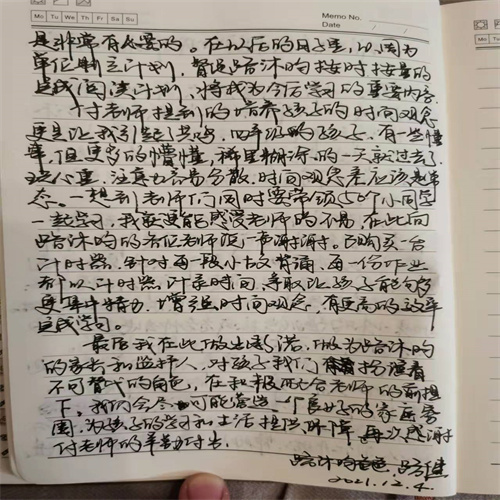 Mo Tu We Th Fr Sa Su
Memo No.
Date / /
Mo Tu
是非常有必要的。在以后的日子里,以周为
单位制立计划,督促路沐昀按时按量的
完成阅读计划,将成为今后学习的重要内容。
付老师提到的培养孩子的时间观念
更是让我引起了共鸣,四年级的孩子,有一些懂
事,但更多的懵懂,稀里糊涂的一天就过去了,
注意力容易分散,时间观念差应该是常
态。一想到老师们同时要带领50个小同学
一起学习,我就更能感受老师的不易,在此向
路沐昀的各位老师说一声谢谢。已购买一台
计时器,针对每一段小古文背诵,每一份作业
都以计时器计录时间,争取让孩子能够
更集中精力,增强时间观念,有更高的效率
完成学习。
最后我在此做出承诺,作为路沐昀
的家长和监护人,对孩子我们扮演着
不可替代的角色,在积极配合老师的前提
下,我们会尽可能营造一个良好的家庭氛
围,为孩子的学习和生活提供保障,再次感谢
付老师的辛勤付出。
路沐昀爸爸 路
2021.12.4.